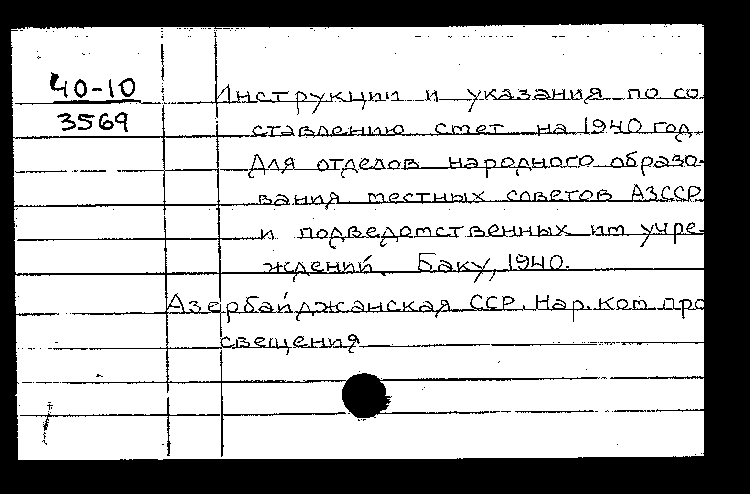 40-10
3569
Инструкции и указания по со
ставлению смет на 1940 год
для отделов народного образо-
вания местных советов АзССР
и подведомственных им учре-
ждений. Баку, 1940.
Азербайджанская ССР. Нар. ком. про
свещения